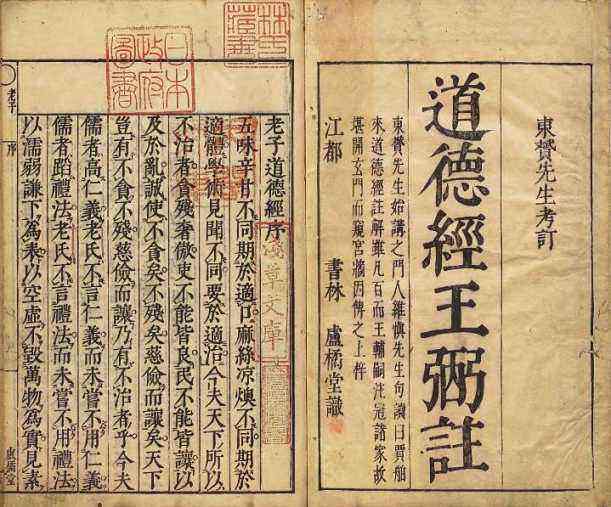 東贇先生考訂
道德經王弼註
東贇先生始講之門人維㒞先生句讀曰賈舶
來道德經註解雖凡百而王輔嗣注冠諸家故
堪開玄門而窺宮牆因傳之上梓
江都 書林 盧橘堂識
林氏藏書
日本政府圖書
淺草文庫
老子道德經序
五味辛甘不同期於適口麻絲涼燠不同期於
適體學術見聞不同要於適治今夫天下所以
不治者貪殘奢傲吏不能皆良民不能皆讓以
及於亂誠使不貪矣不殘矣慈儉而讓矣天下
豈有不貪不殘慈儉而讓乃有不治者乎今夫
儒者高仁義老氏不言仁義而未嘗不用仁義
儒者蹈禮法老氏不言禮法而未嘗不用禮法
以濡弱謙下為表以空虛不毀萬物為實見素
老子 序